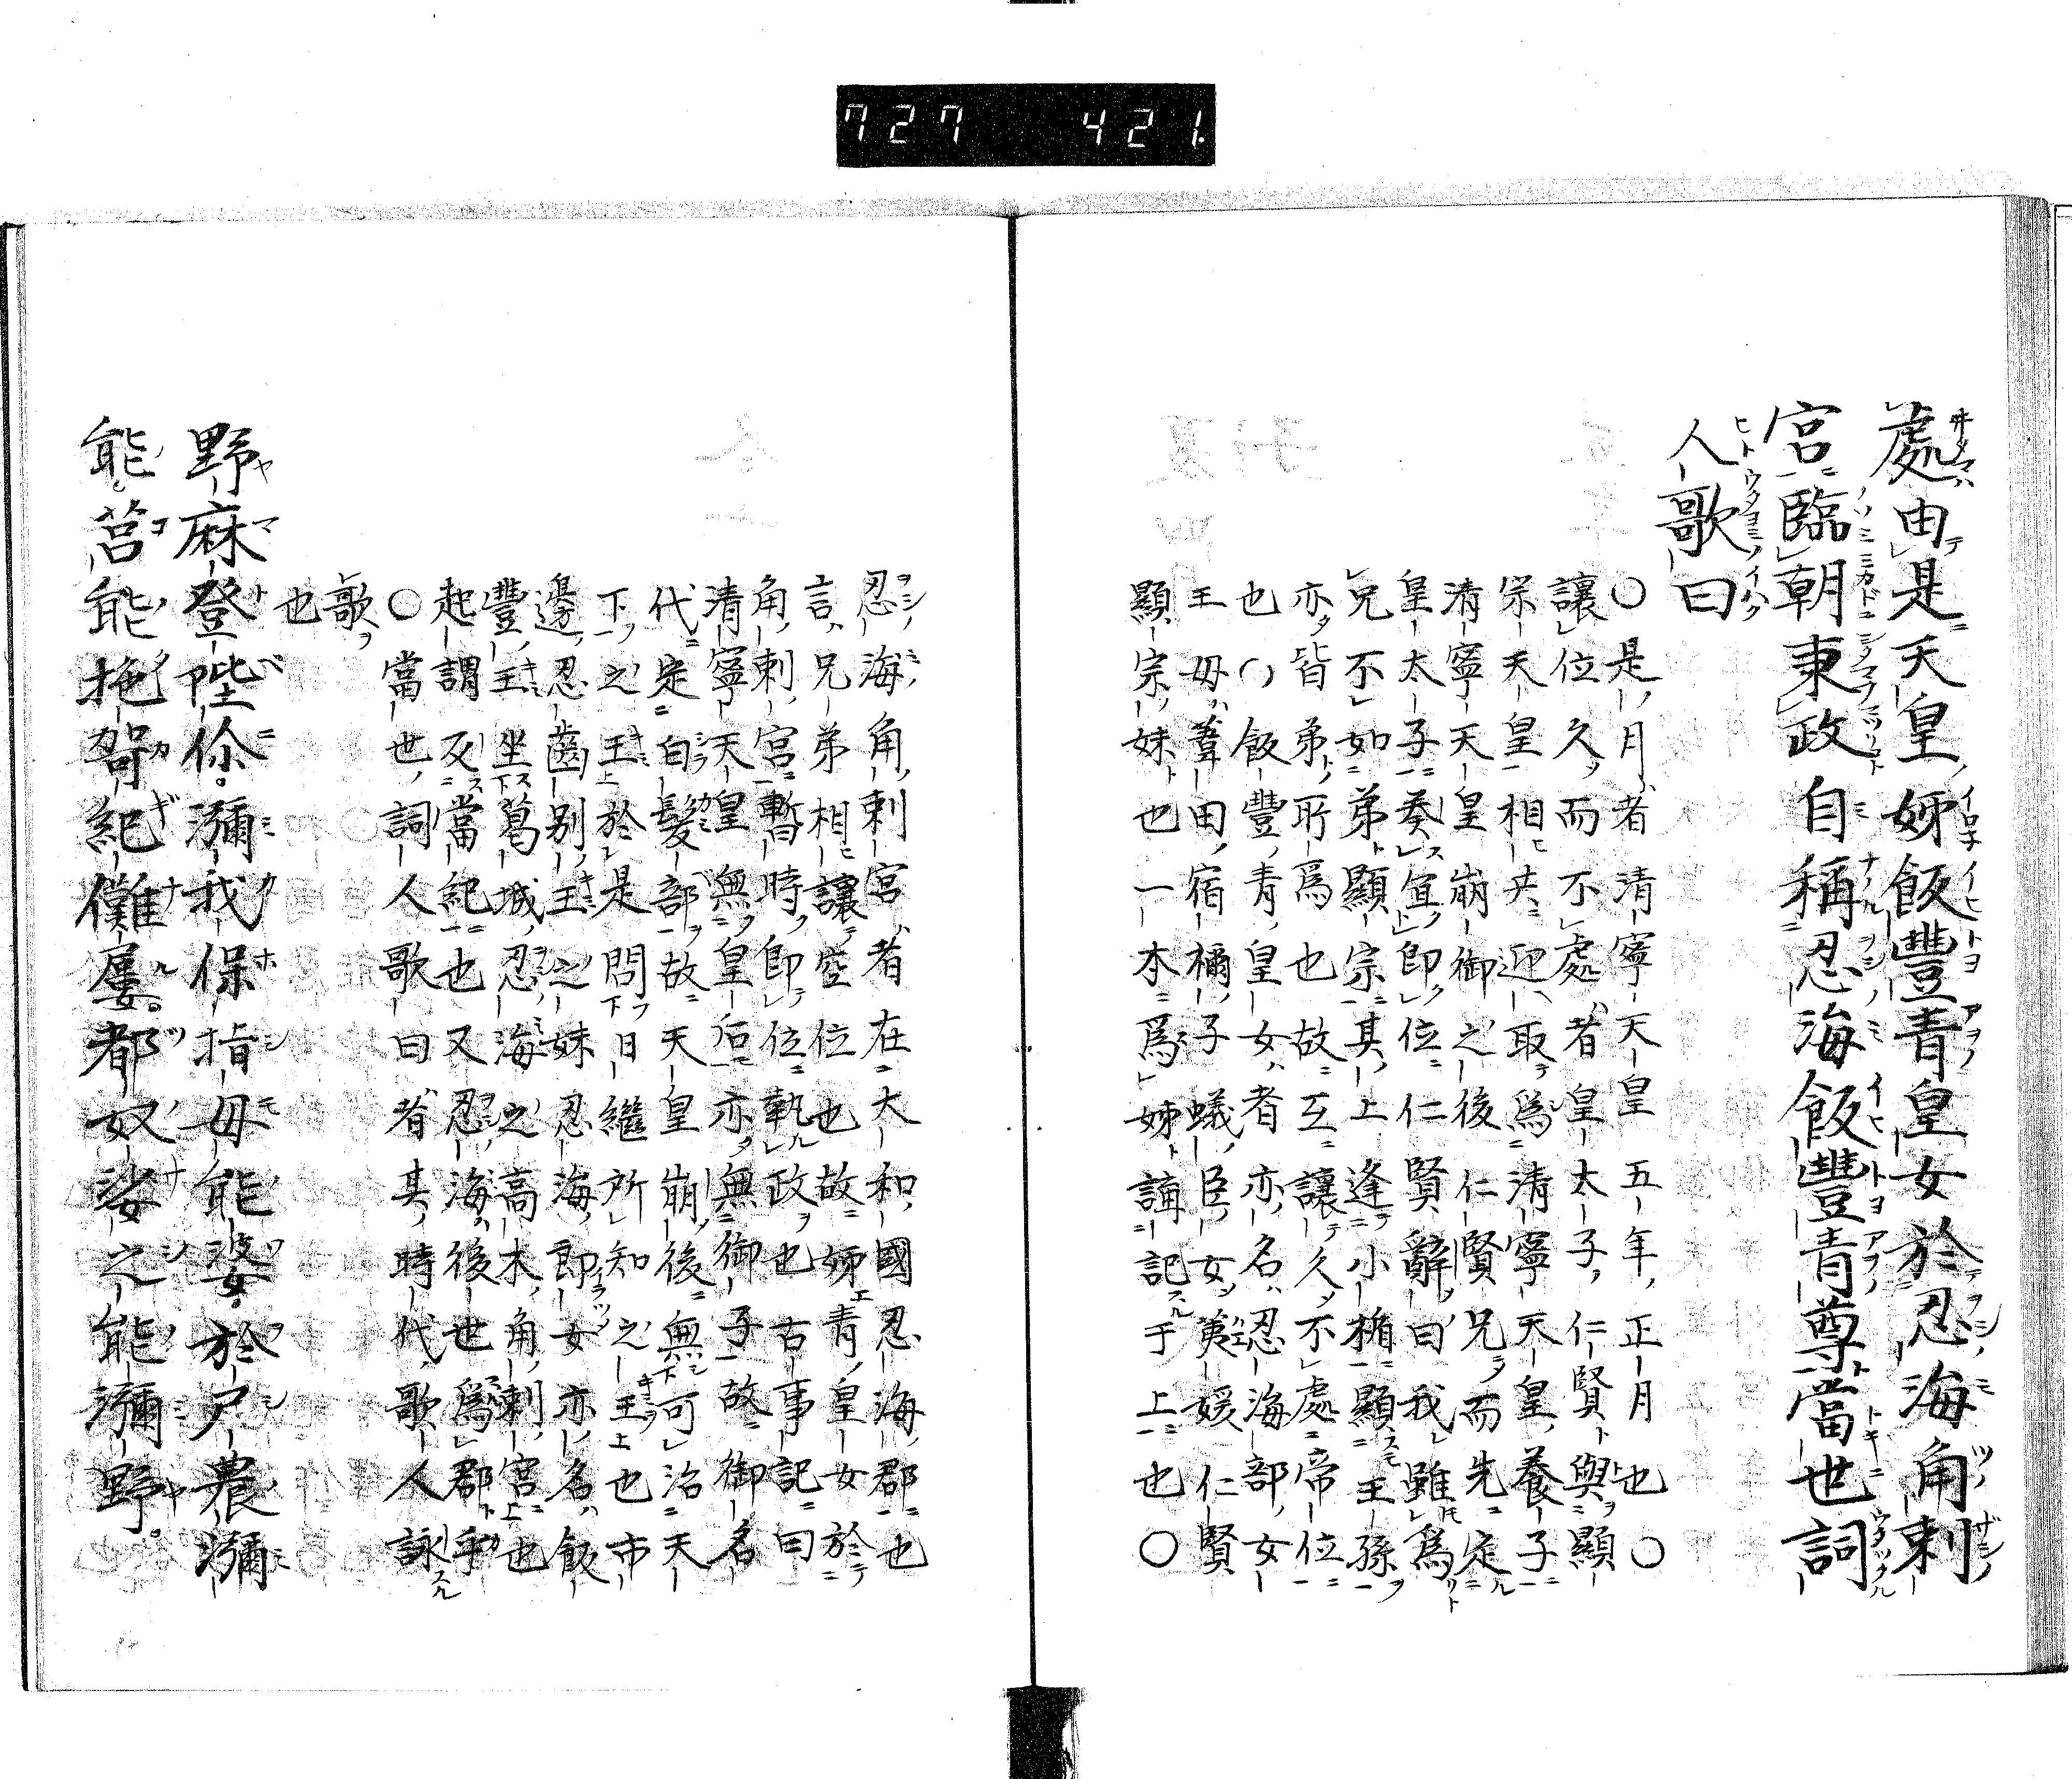 727 421
處由是天皇姉飯豐青皇女於忍海角刺
宮臨朝秉政自稱忍海飯豐青尊當世詞
人歌曰
○是月者清寧天皇五年正月也○
讓位久而不處者皇太子仁賢與顯
宗天皇相共迎取爲清寧天皇養子
清寧天皇崩御之後仁賢兄而先定
皇太子奏宜即位仁賢辭曰我雖爲
兄不如弟顯宗其上逢小楯顯王孫
亦皆弟所爲也故互讓久不處帝位
也○飯豐青皇女者亦名忍海部女
王母葦田宿禰子蟻臣女荑媛仁賢
顯宗妹也一本爲姉誦記于上也○
忍海角刺宮者在大和國忍海郡也
言兄弟相讓空位也故姉青皇女於
角刺宮暫時即位執政也古事記曰
清寧天皇無皇后亦無御子故御名
代定白髮部故天皇崩後無可治天
下之王於是問日繼所知之王也市
邊忍齒別王之妹忍海郎女亦名飯
豐王坐葛城忍海之高木角刺宮也
起謂反當紀也又忍海後世爲郡乎
○當世詞人歌曰者其時代歌人詠
歌
也
野麻登陛伱瀰我保指母能婆於尸農瀰
能莒能拖哿紀儺屢都奴娑之能瀰野